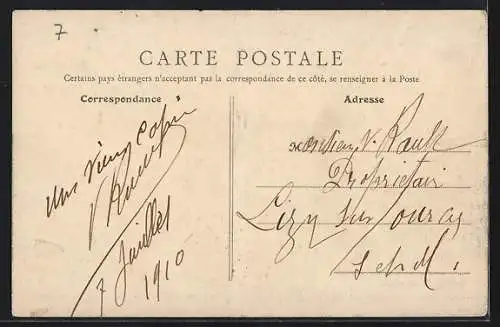 7
CARTE POSTALE
Certains pays étrangers n'acceptant pas la correspondance de ce côté, se renseigner à la Poste
Correspondance
un vieux Copin
7 Juillet
1910
Adresse
Monsieur V. Rault
Propriétair
Lizy sur Ourcq
S et M.